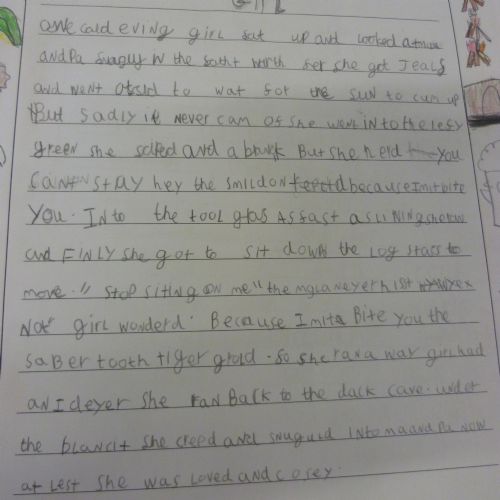 GIRL
one cald eving girl sat up and looked at ma
and Pa snuguly in the with her she got Jeals
and went otsid to wat for the sun to cum up
But sadly it never cam of she went in to the lefy
green she and a But she herd you
cant stay hey the smildon because I mit bite
you. Into the tool glas as fast as
and FINLY she got to sit down the Log stars to
move." stop siting on me" the hist
Not girl wonderd. Because I mite Bite you the
saber tooth tiger grold. so she ran a way girl had
an Ideyer she ran Back to the dack cave. under
the blancit she creed and snuguld into ma and Pa now
at lest she was loved and cosey.